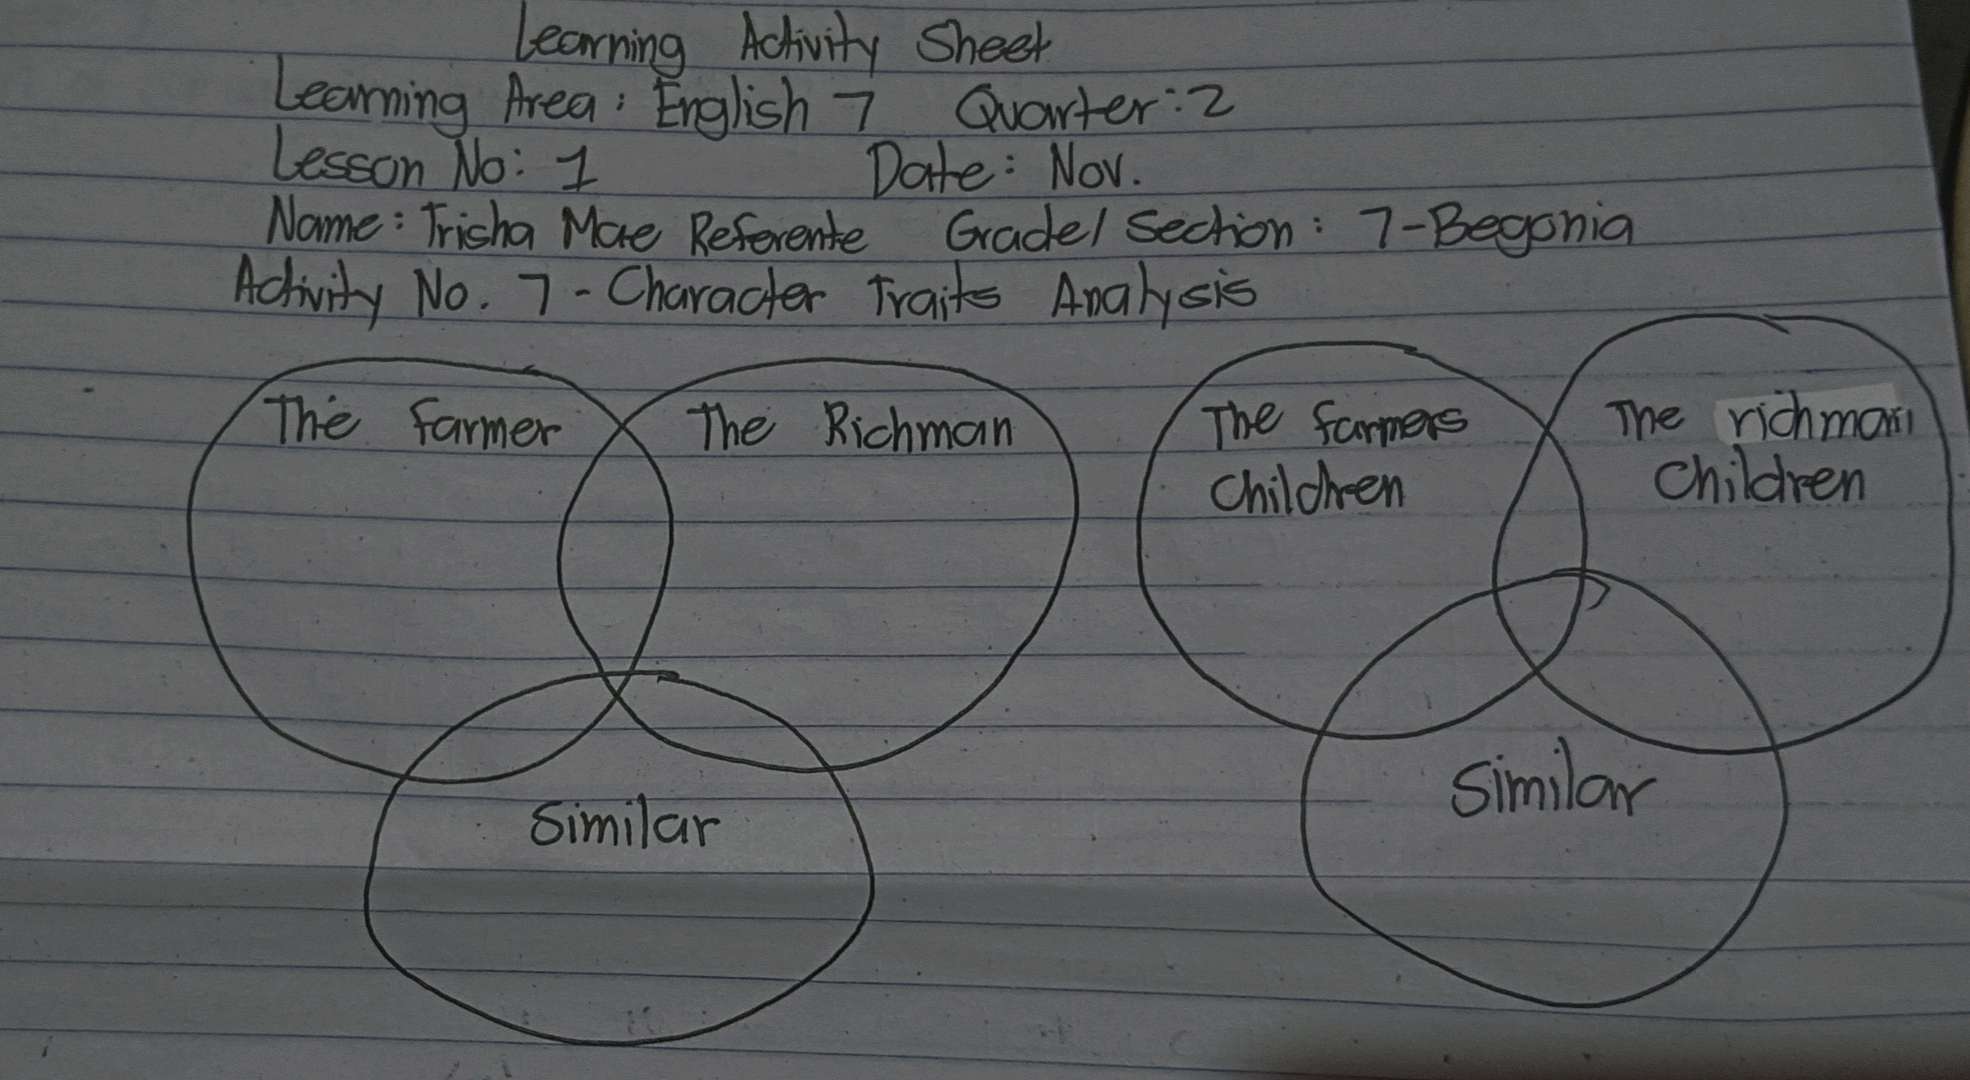 Learning Activity Sheet
Learning Area: English 7 Quarter: 2
Lesson No: 1 Date: Nov.
Name: Trisha Mae Referente Grade/Section: 7-Begonia
Activity No. 7 - Character Traits Analysis
The farmer
The Richman
Similar
The farmers
Children
The richman
Children
Similar